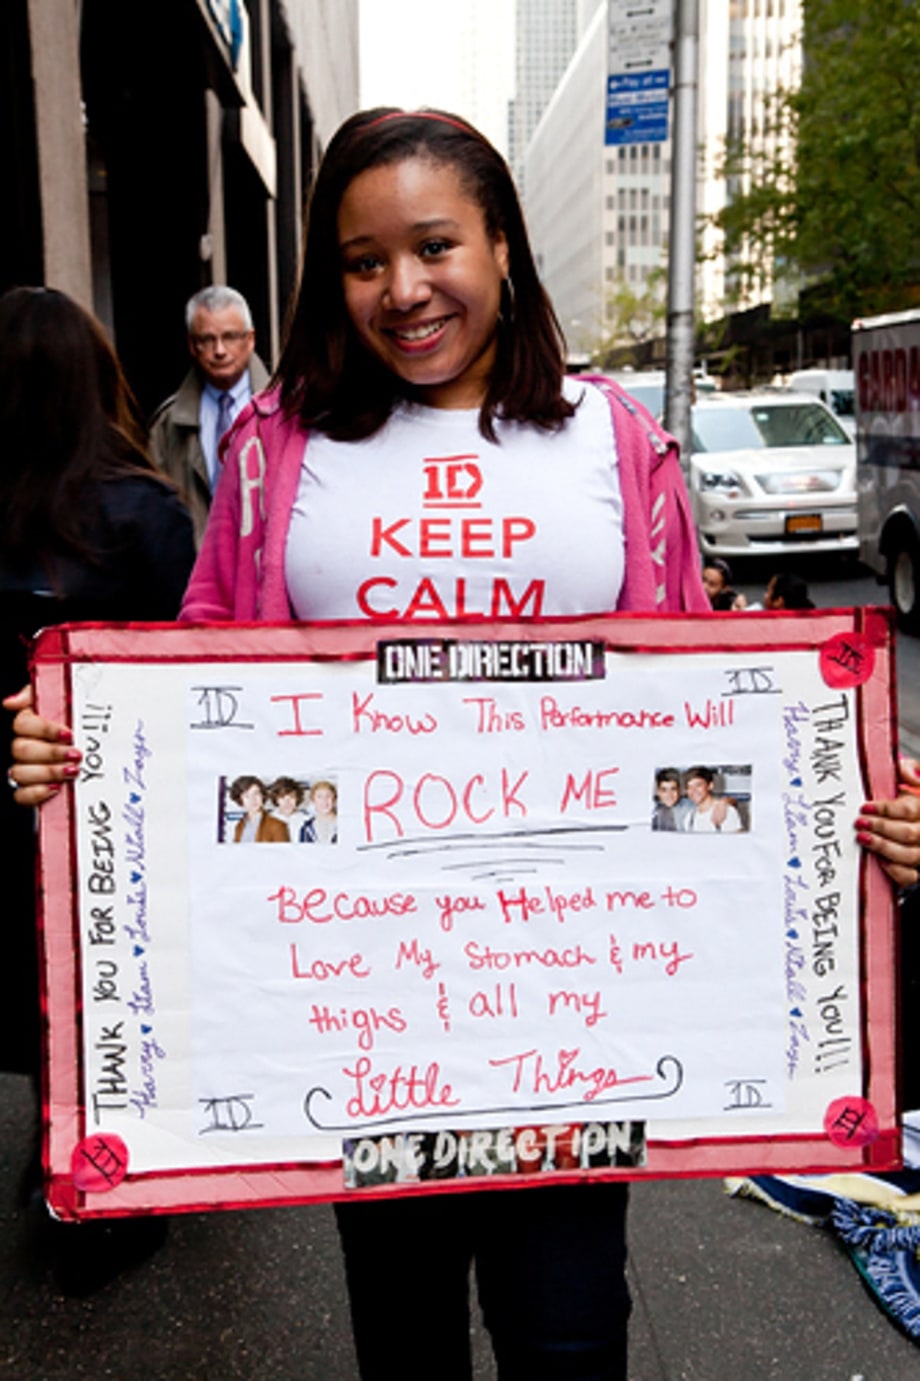 1D
KEEP
CALM
ONE DIRECTION
1D
1D
I Know This Performance Will
ROCK ME
Because you Helped me to
Love My Stomach & my
thighs & all my
Little Things
1D
1D
ONE DIRECTION
THANK YOU FOR BEING YOU!!!
Harry ♥ Liam ♥ Louis ♥ Niall ♥ Zayn
THANK YOU FOR BEING YOU!!!
Harry ♥ Liam ♥ Louis ♥ Niall ♥ Zayn
1D
1D
1D